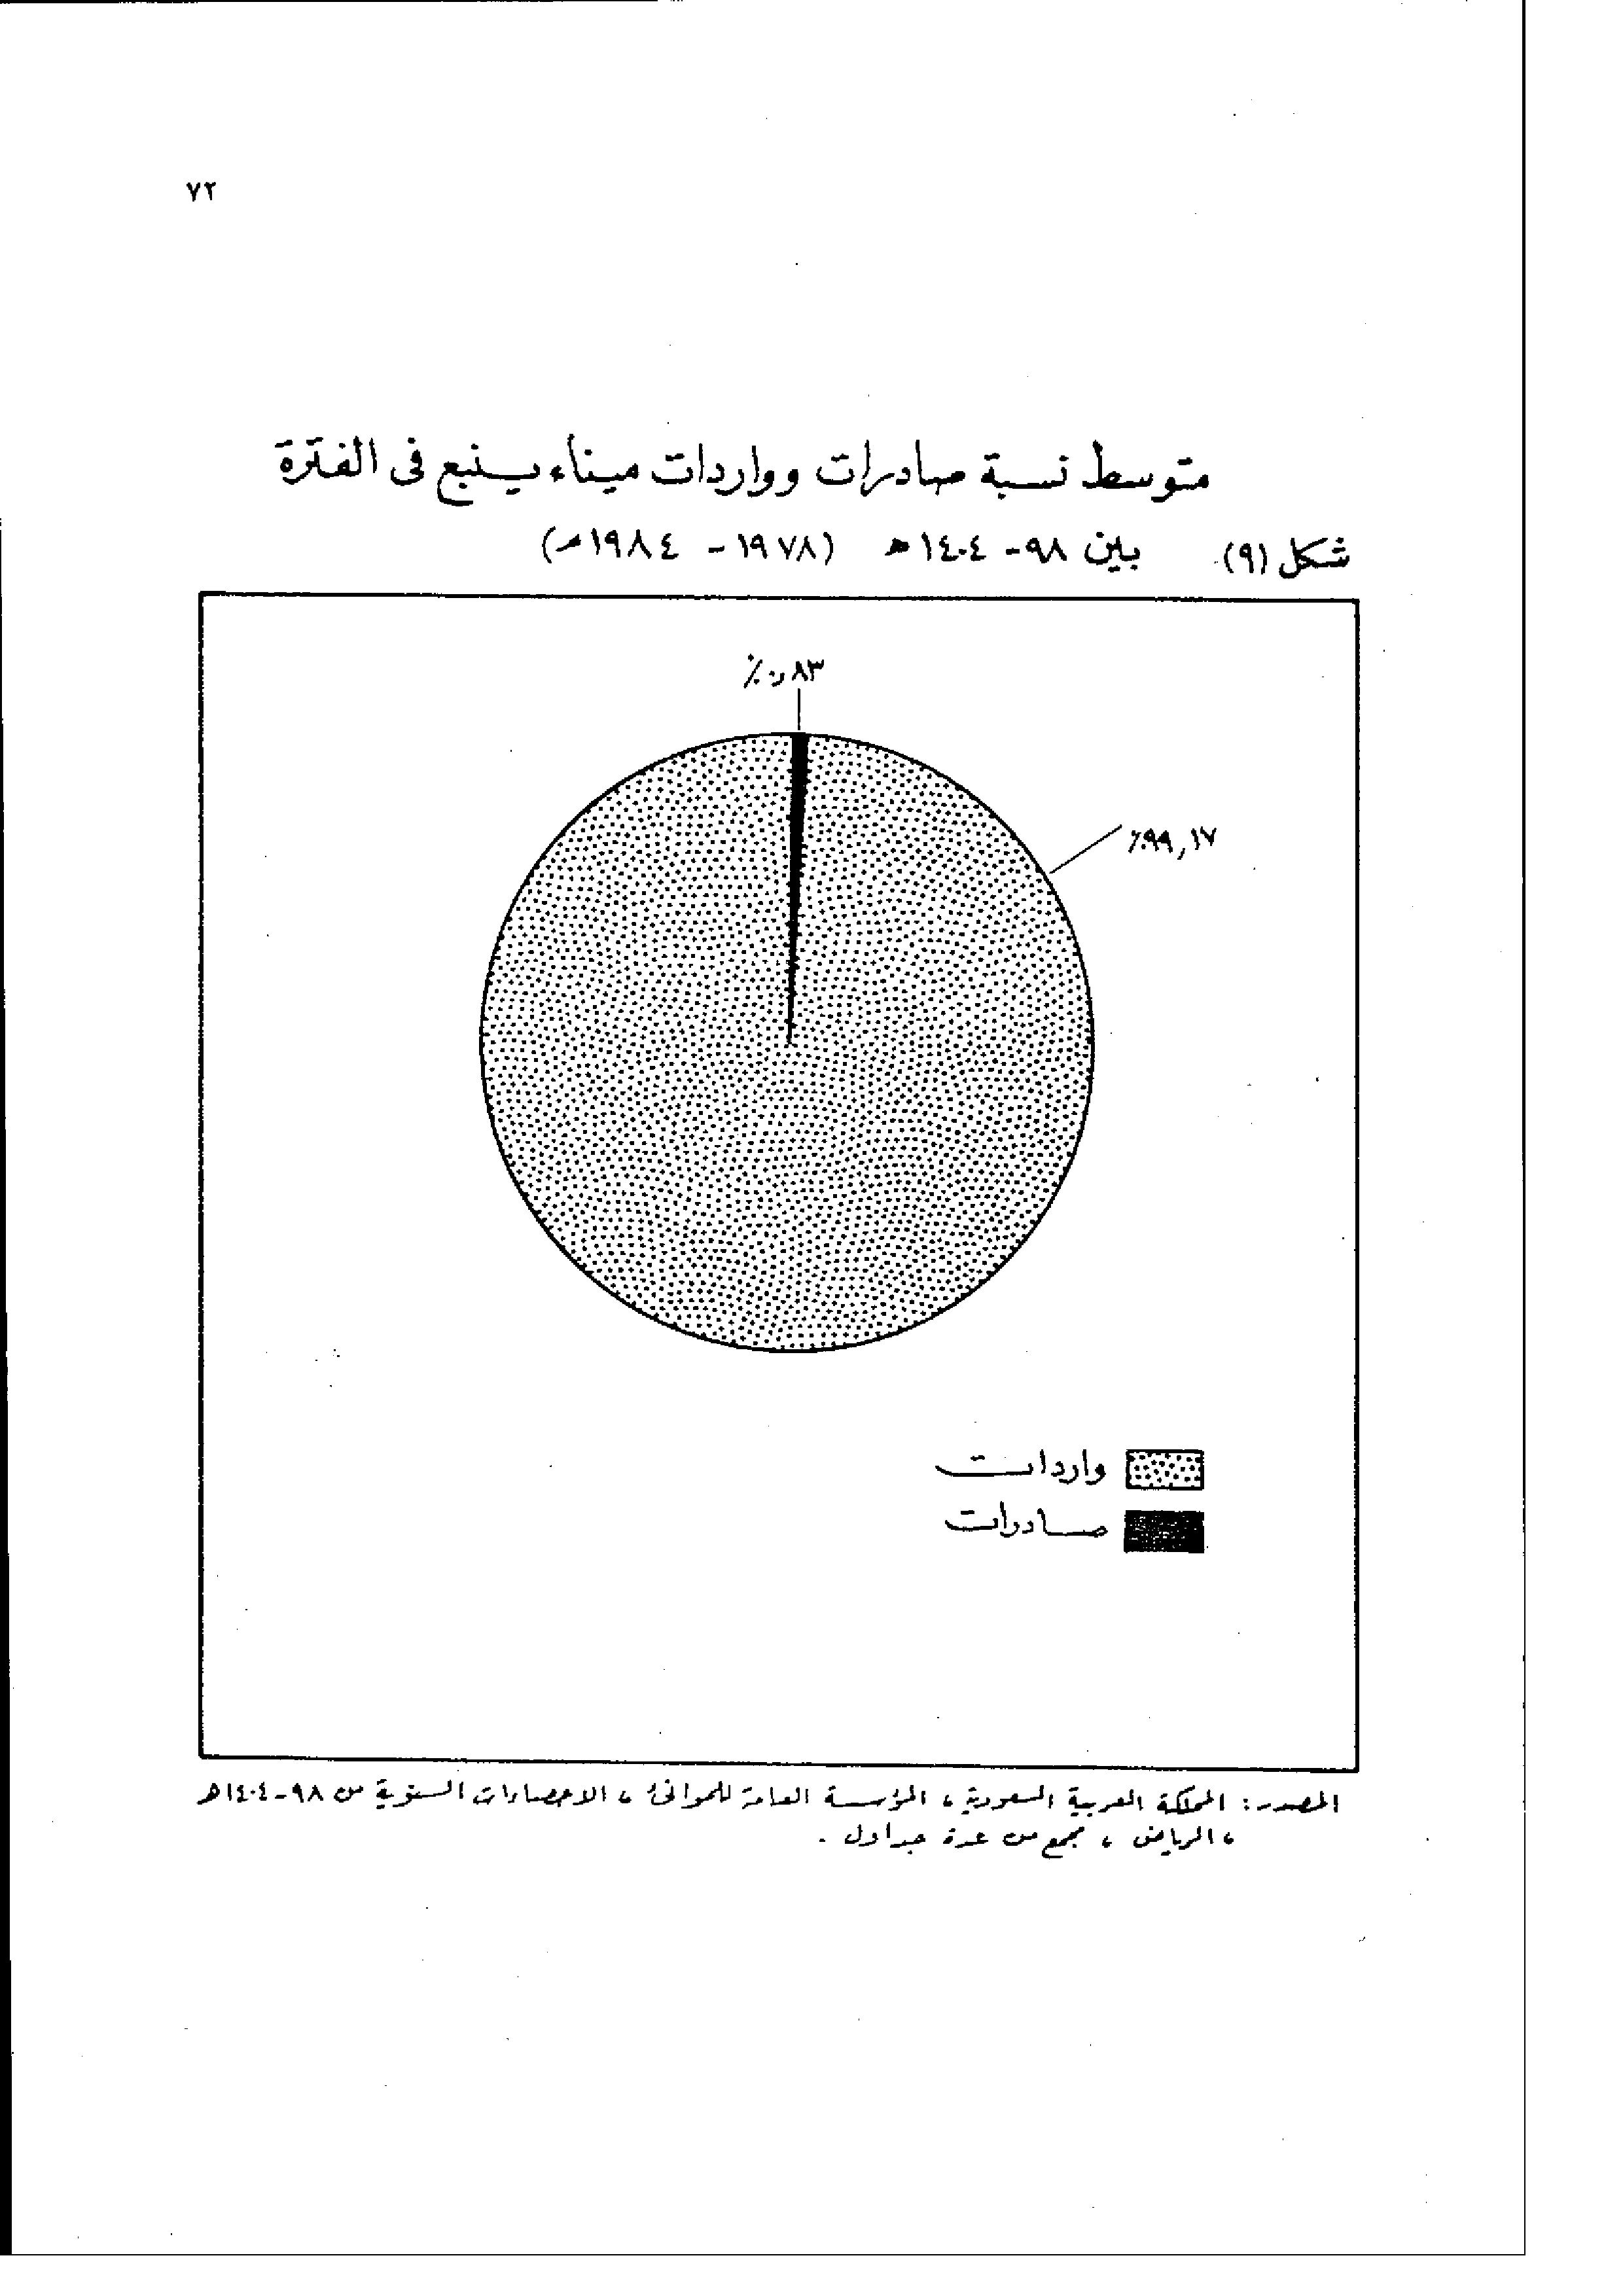 ٧٢
متوسط نسبة صادرات وواردات ميناء ينبع فى الفترة
شكل (٩) بين ٩٨- ١٤٠٤هـ (١٩٧٨ - ١٩٨٤م)
٨٣,٠٪
٩٩,١٧٪
واردات
صادرات
المصدر: المملكة العربية السعودية، المؤسسة العامة للموانئ، الاحصاءات السنوية من ٩٨-١٤٠٤هـ
، الرياض، مجمع من عدة جداول.